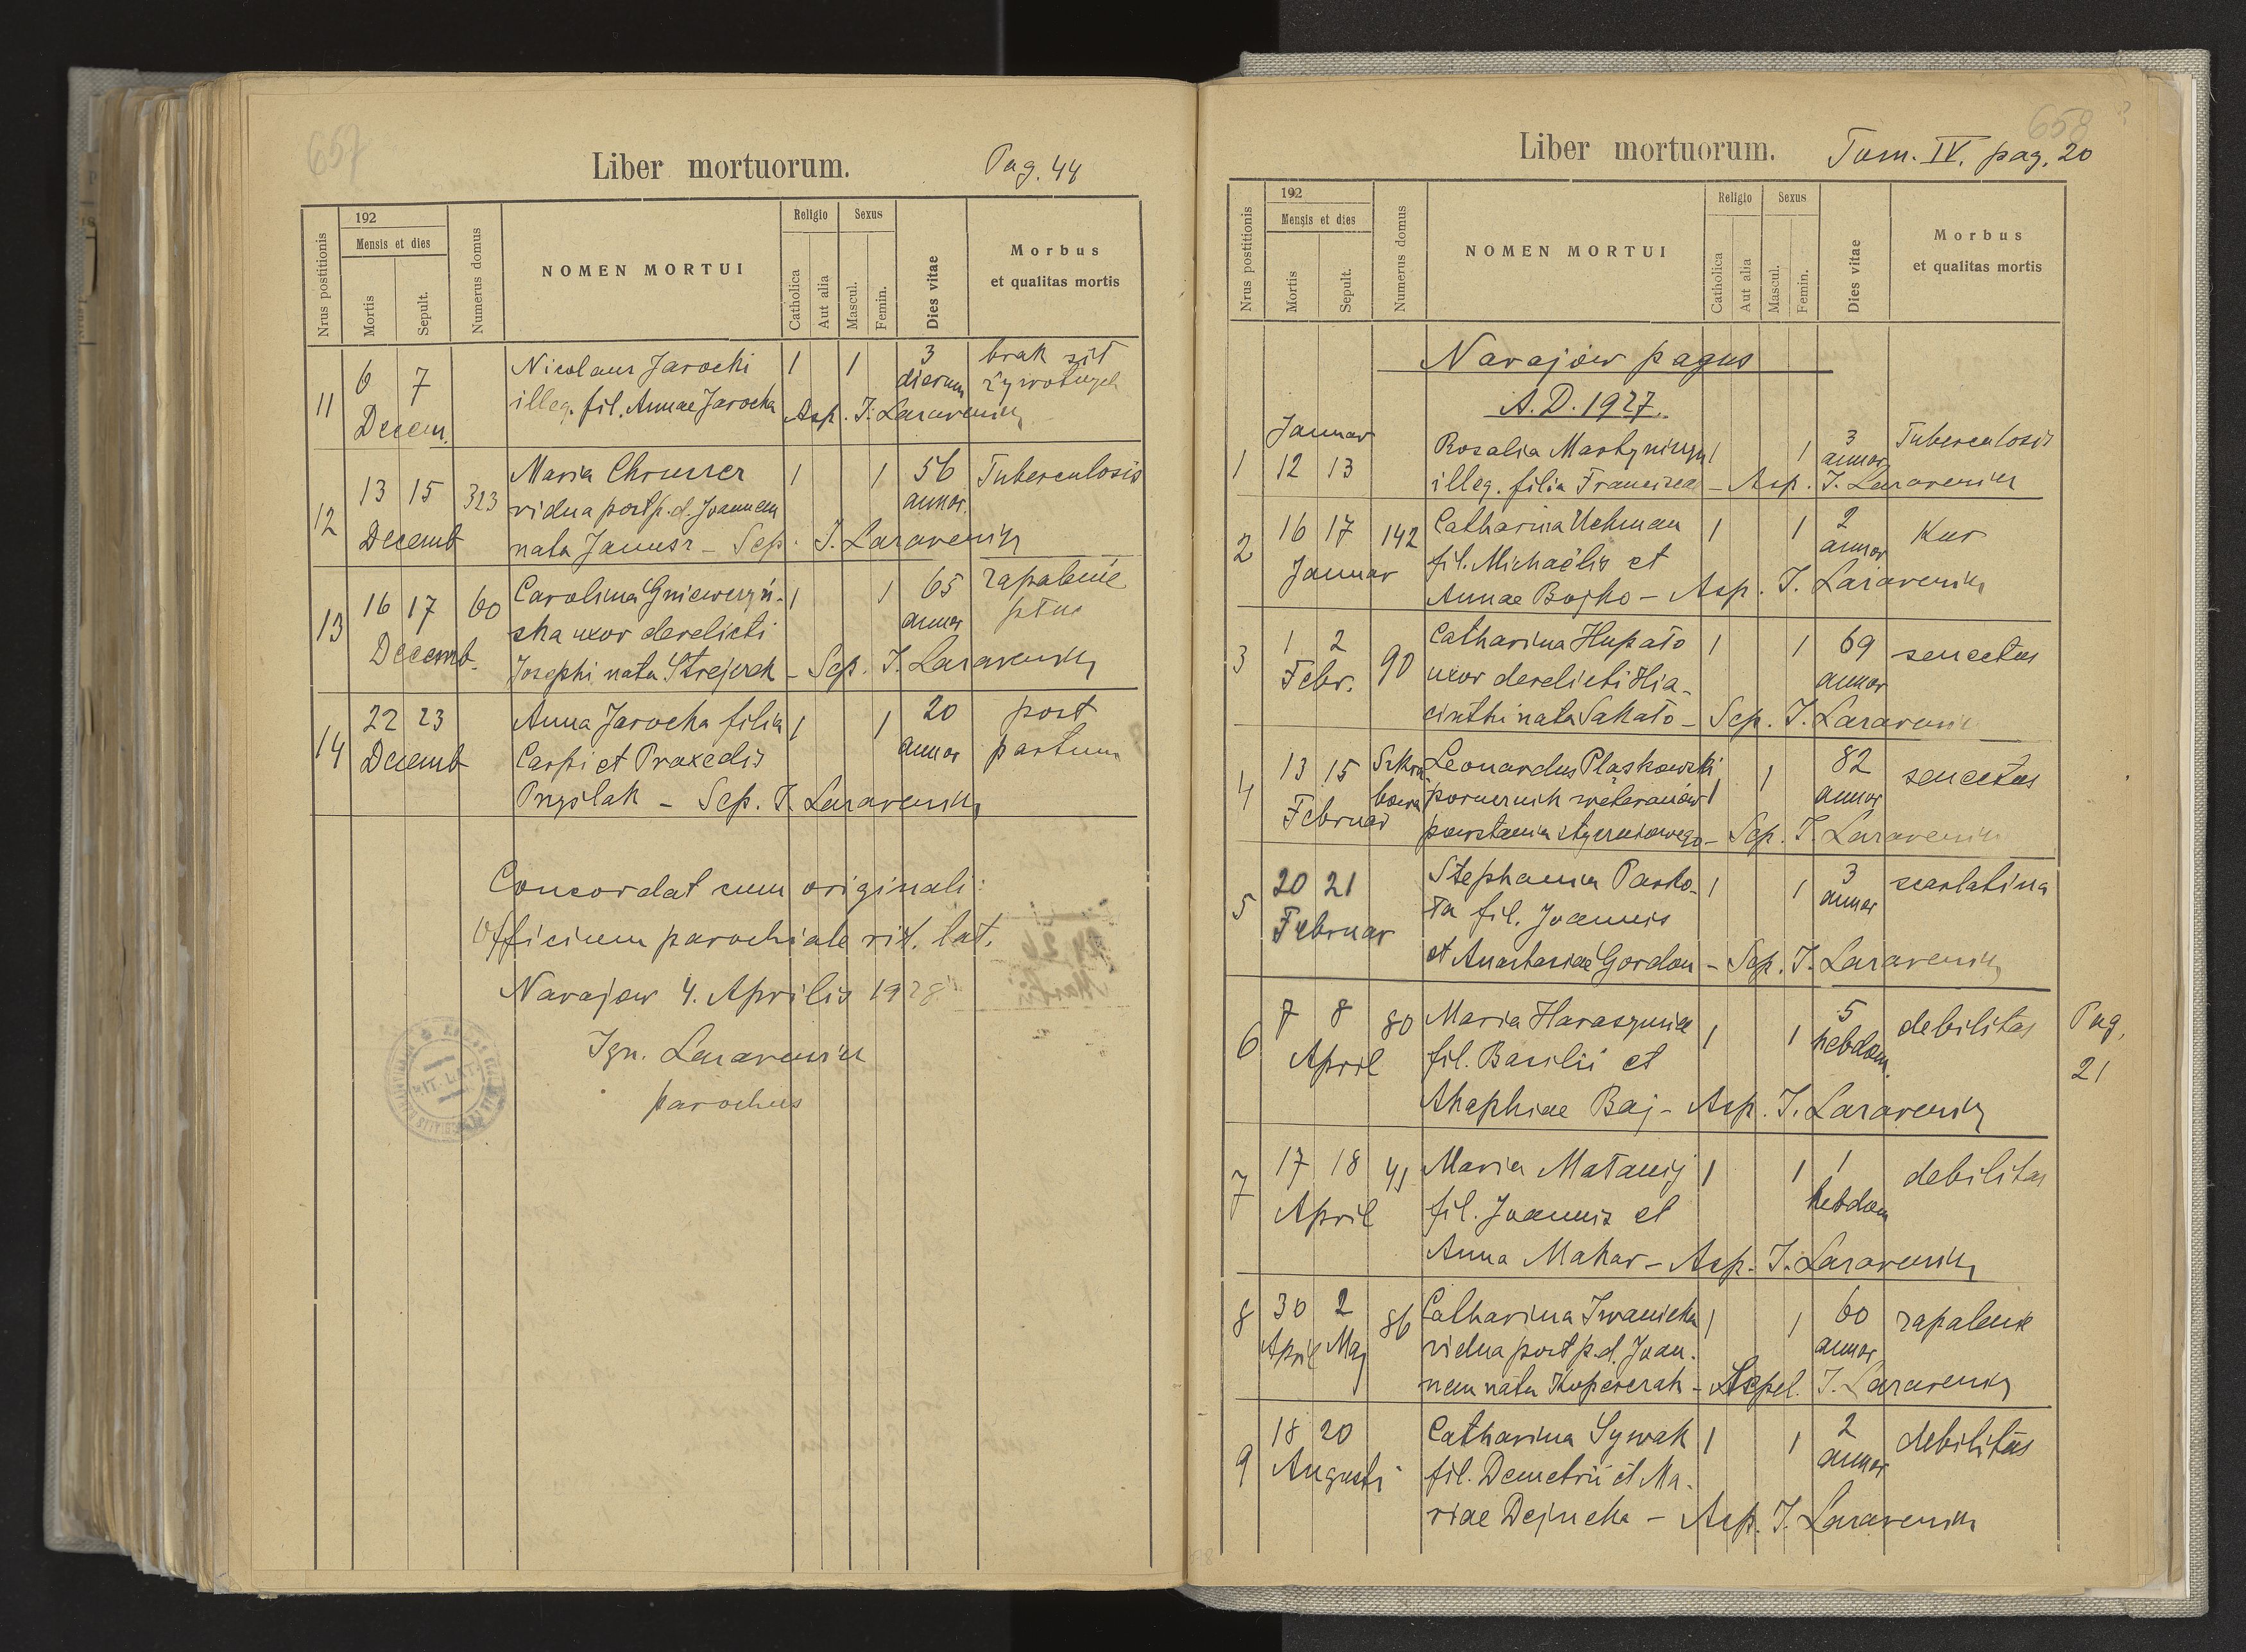 657
Liber mortuorum.
Pag. 44
Nrus postitionis
192
Mensis et dies
Mortis
Sepult.
Numerus domus
NOMEN MORTUI
Religio
Catholica
Aut alia
Sexus
Mascul.
Femin.
Dies vitae
Morbus
et qualitas mortis
11 6 7 Nicolaus Jarocki 1 1 3 brak sił
Decem. illeg. fil. Annae Jarocka dierum żywotnych
Asp. I. Lazarewicz
12 13 15 323 Maria Chruszcz 1 1 56 Tuberculosis
vidua post p. d. Joannem annor.
Decemb nata Janusz – Sep. I. Lazarewicz
13 16 17 60 Carolina Gniewczyń- 1 1 65 zapalenie
ska uxor derelicti annor płuc
Decemb. Josephi nata Strejczek – Sep. I. Lazarewicz
14 22 23 Anna Jarocka filia 1 1 20 post
Decemb Carpi et Praxedis annor partum
Pryślak – Sep. I. Lazarewicz
Concordat cum originali:
Officium parochiale rit. lat.
Narajow 4. Aprilis 1928
Ign. Lazarewicz
parochus
RIT. LAT.
658
Liber mortuorum.
Tom. IV. pag. 20
Nrus postitionis
192
Mensis et dies
Mortis
Sepult.
Numerus domus
NOMEN MORTUI
Religio
Catholica
Aut alia
Sexus
Mascul.
Femin.
Dies vitae
Morbus
et qualitas mortis
Narajow pagus
A. D. 1927.
Januar
1 12 13 Rosalia Martyniszyn 1 1 3 annor Tuberculosis
illeg. filia Franciscae – Asp. I. Lazarewicz
2 16 17 142 Catharina Uchman 1 1 2 Kur
Januar fil. Michaëlis et annor
Annae Bojko – Asp. I. Lazarewicz
3 1 2 90 Catharina Hupało 1 1 69 senectus
Febr. uxor derelicti Hia- annor
cinthi nata Sakało – Sep. I. Lazarewicz
4 13 15 Leonardus Pląskowski 1 82 senectus
porucznik weteranów 1 annor
Februar powstania styczniowego – Sep. I. Lazarewicz
5 20 21 Stephania Parko- 1 1 3 scarlatina
Februar ta fil. Joannis annor
et Anastasiae Gordon – Sep. I. Lazarewicz
6 7 8 80 Maria Harasymia 1 1 5 debilitas Pag.
April fil. Basilii et hebdom. 21
Ahaphiae Baj – Asp. I. Lazarewicz
7 17 18 41 Maria Matanij 1 1 1 debilitas
April fil. Joannis et hebdom
Anna Mahar – Asp. I. Lazarewicz
8 30 2 86 Catharina Iwanicka 1 1 60 zapalenie
April Maj vidua post p. d. Joan- annor
nem nata Kopczak – Sepel. I. Lazarewicz
9 18 20 Catharina Sywak 1 1 2 debilitas
Augusti fil. Demetrii et Ma- annor
riae Dejneka – Asp. I. Lazarewicz